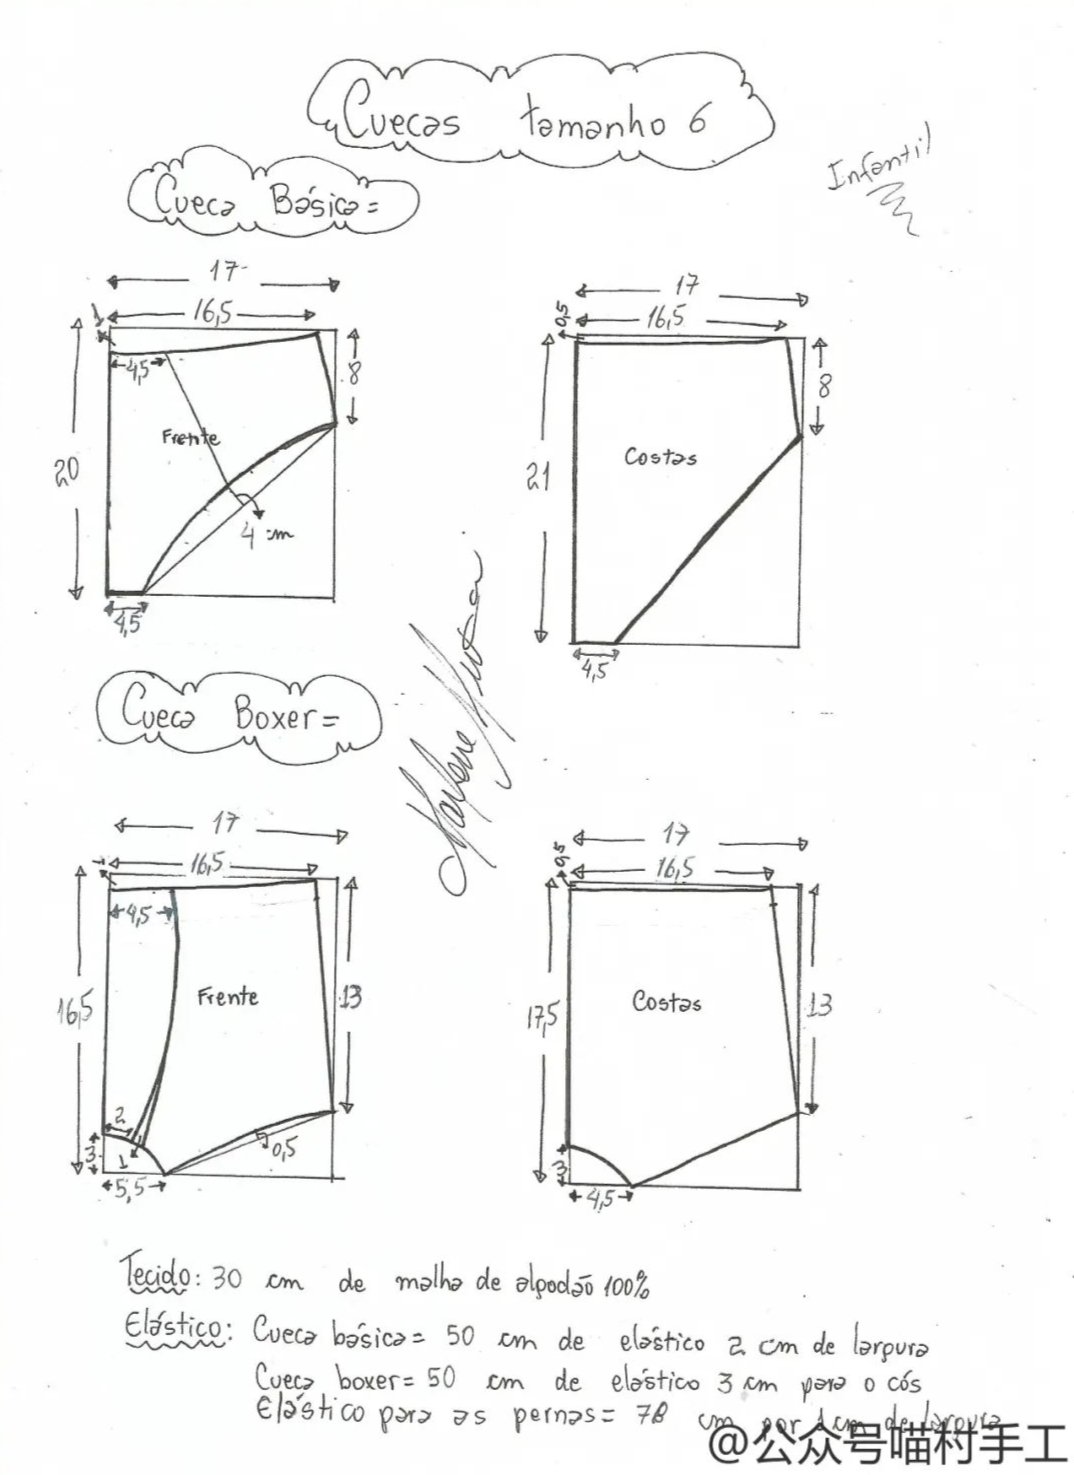 Cuecas tamanho 6
Infantil
Cueca Básica=
17
16,5
1
4,5
20
8
Frente
4 cm
4,5
17
16,5
0,5
21
8
Costas
4,5
Cueca Boxer=
17
16,5
1
4,5
16,5
13
Frente
2
3
1
5,5
0,5
17
16,5
0,5
17,5
13
Costas
3
4,5
Tecido: 30 cm de malha de algodão 100%
Elástico: Cueca básica= 50 cm de elástico 2 cm de largura
Cueca boxer= 50 cm de elástico 3 cm para o cós
Elástico para as pernas= 78 cm por 1 cm de largura
@公众号喵村手工